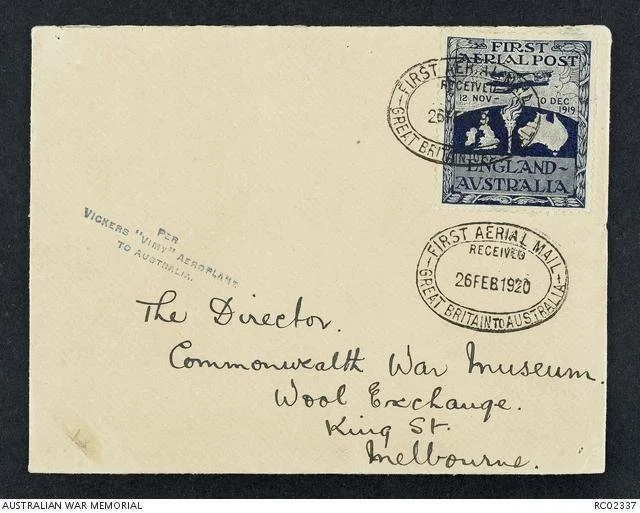 FIRST
AERIAL POST
12 NOV - 10 DEC
1919
ENGLAND -
AUSTRALIA
FIRST AERIAL MAIL
RECEIVED
GREAT BRITAIN TO
FIRST AERIAL MAIL
RECEIVED
26 FEB 1920
GREAT BRITAIN TO AUSTRALIA
PER
VICKERS "VIMY" AEROPLANE
TO AUSTRALIA.
The Director.
Commonwealth War Museum.
Wool Exchange.
King St.
Melbourne.
AUSTRALIAN WAR MEMORIAL
RC02337